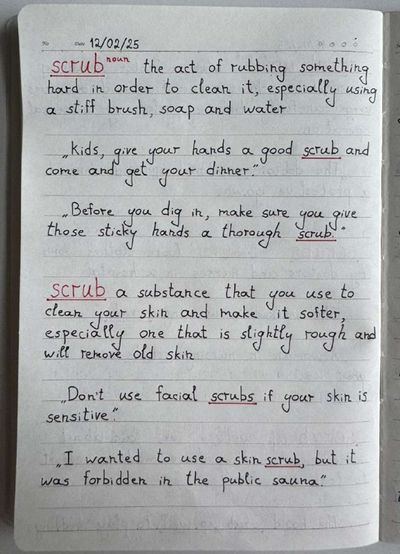 No Date 12/02/25
scrub noun the act of rubbing something
hard in order to clean it, especially using
a stiff brush, soap and water
„Kids, give your hands a good scrub and
come and get your dinner.“
„Before you dig in, make sure you give
those sticky hands a thorough scrub.“
scrub a substance that you use to
clean your skin and make it softer,
especially one that is slightly rough and
will remove old skin
„Don't use facial scrubs if your skin is
sensitive.“
„I wanted to use a skin scrub, but it
was forbidden in the public sauna.“